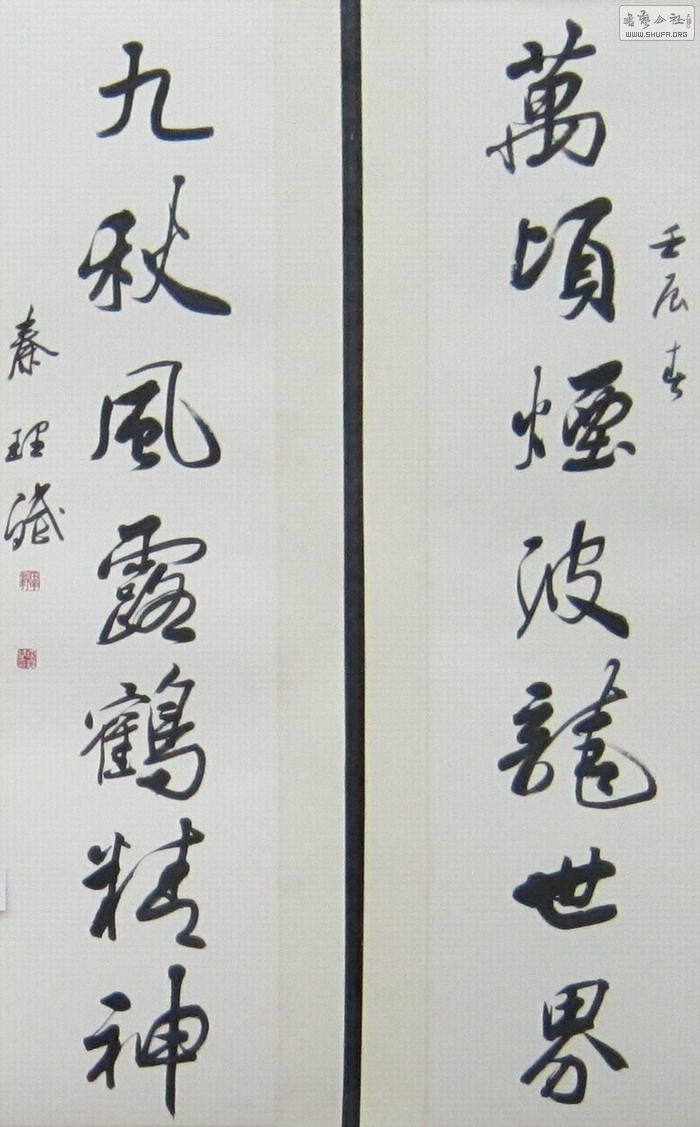 萬頃煙波龍世界
壬辰春
九秋風露鶴精神
秦理斌
書法公社
WWW.SHUFA.ORG